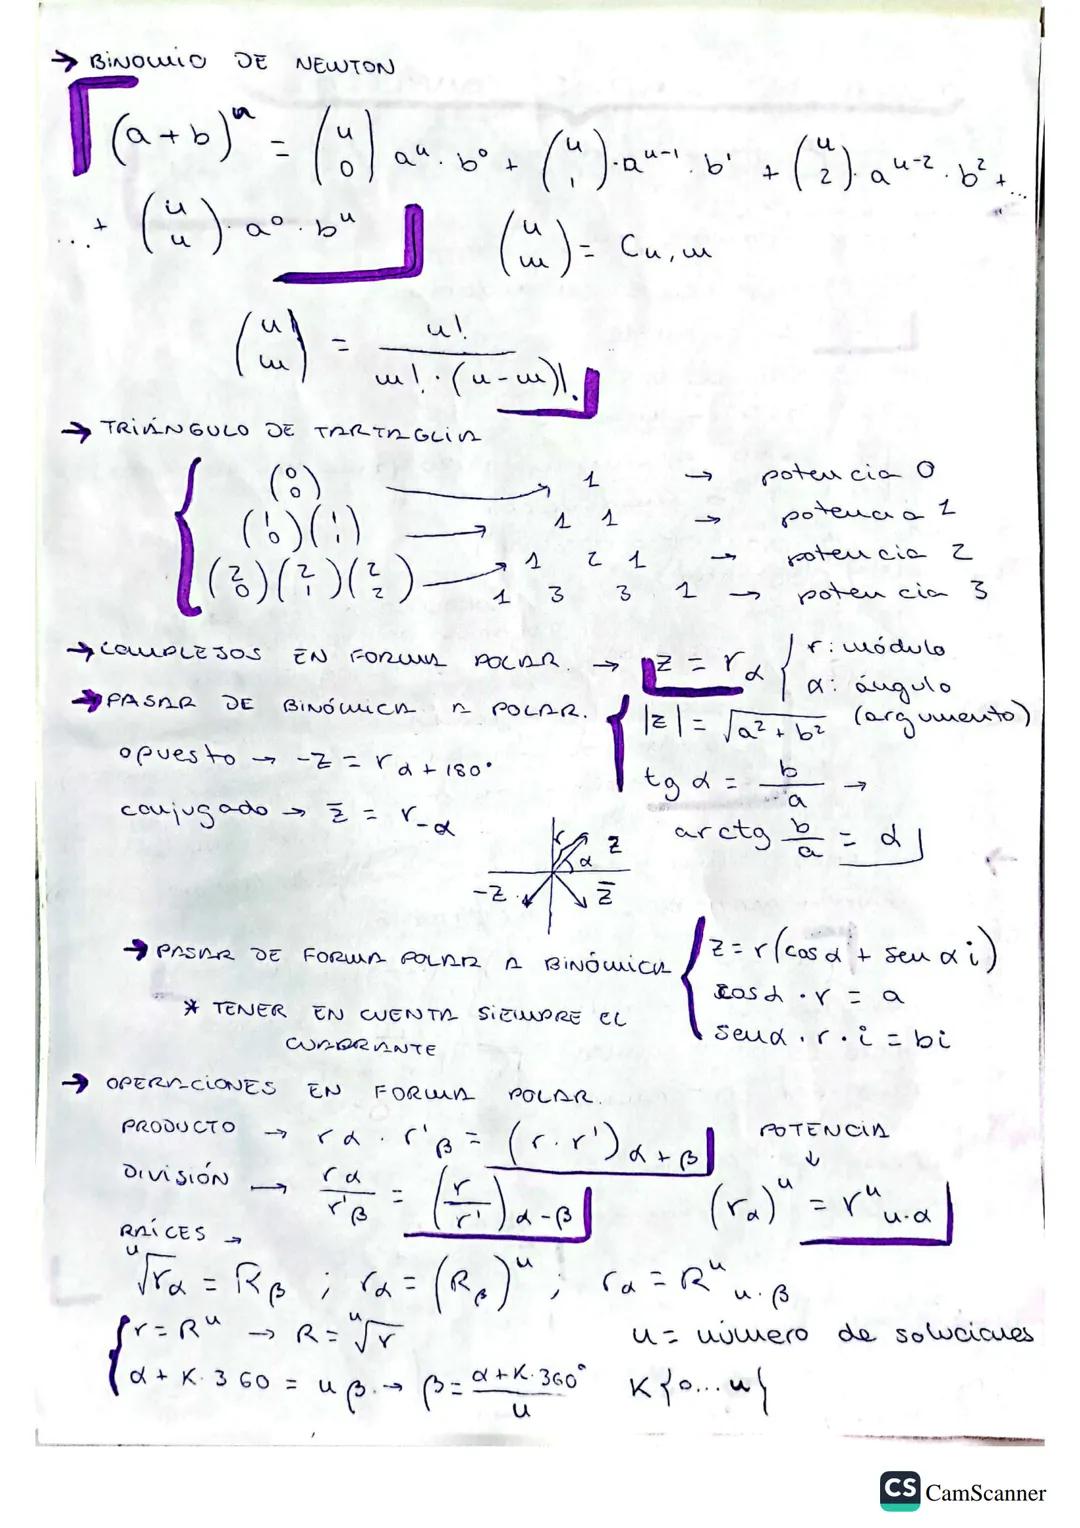 → BINOMIO DE NEWTON
(a+b)ⁿ = (n 0) aⁿ · b⁰ + (n 1) · aⁿ⁻¹ · b¹ + (n 2) · aⁿ⁻² · b² + ...
... + (n n) · a⁰ · bⁿ
(n m) = Cn,m
(n m) = n! / m! · (n-m)!
→ TRIÁNGULO DE TARTAGLIA
(0 0) → 1 → potencia 0
(1 0)(1 1) → 1 1 → potencia 1
(2 0)(2 1)(2 2) → 1 2 1 → potencia 2
1 3 3 1 → potencia 3
→ COMPLEJOS EN FORMA POLAR. → z = r_α { r: módulo
α: ángulo (argumento)
→ PASAR DE BINÓMICA A POLAR. { |z| = √(a² + b²)
opuesto → -z = r_α+180°
tg α = b/a →
conjugado → z̄ = r_-α
arctg b/a = α
r z
α
-z z̄
→ PASAR DE FORMA POLAR A BINÓMICA { z = r(cos α + sen α i)
cos α · r = a
* TENER EN CUENTA SIEMPRE EL
sen α · r · i = bi
CUADRANTE
→ OPERACIONES EN FORMA POLAR.
PRODUCTO → r_α · r'_β = (r · r')_α+β
POTENCIA ↓
DIVISIÓN → r_α / r'_β = (r / r')_α-β
(r_α)ⁿ = rⁿ_n·α
RAÍCES →
ⁿ√r_α = R_β ; r_α = (R_β)ⁿ ; r_α = Rⁿ_n·β
{ r = Rⁿ → R = ⁿ√r
n = número de soluciones
α + K · 360 = nβ. → β = (α + K · 360°) / n
K {0...n}
CS CamScanner